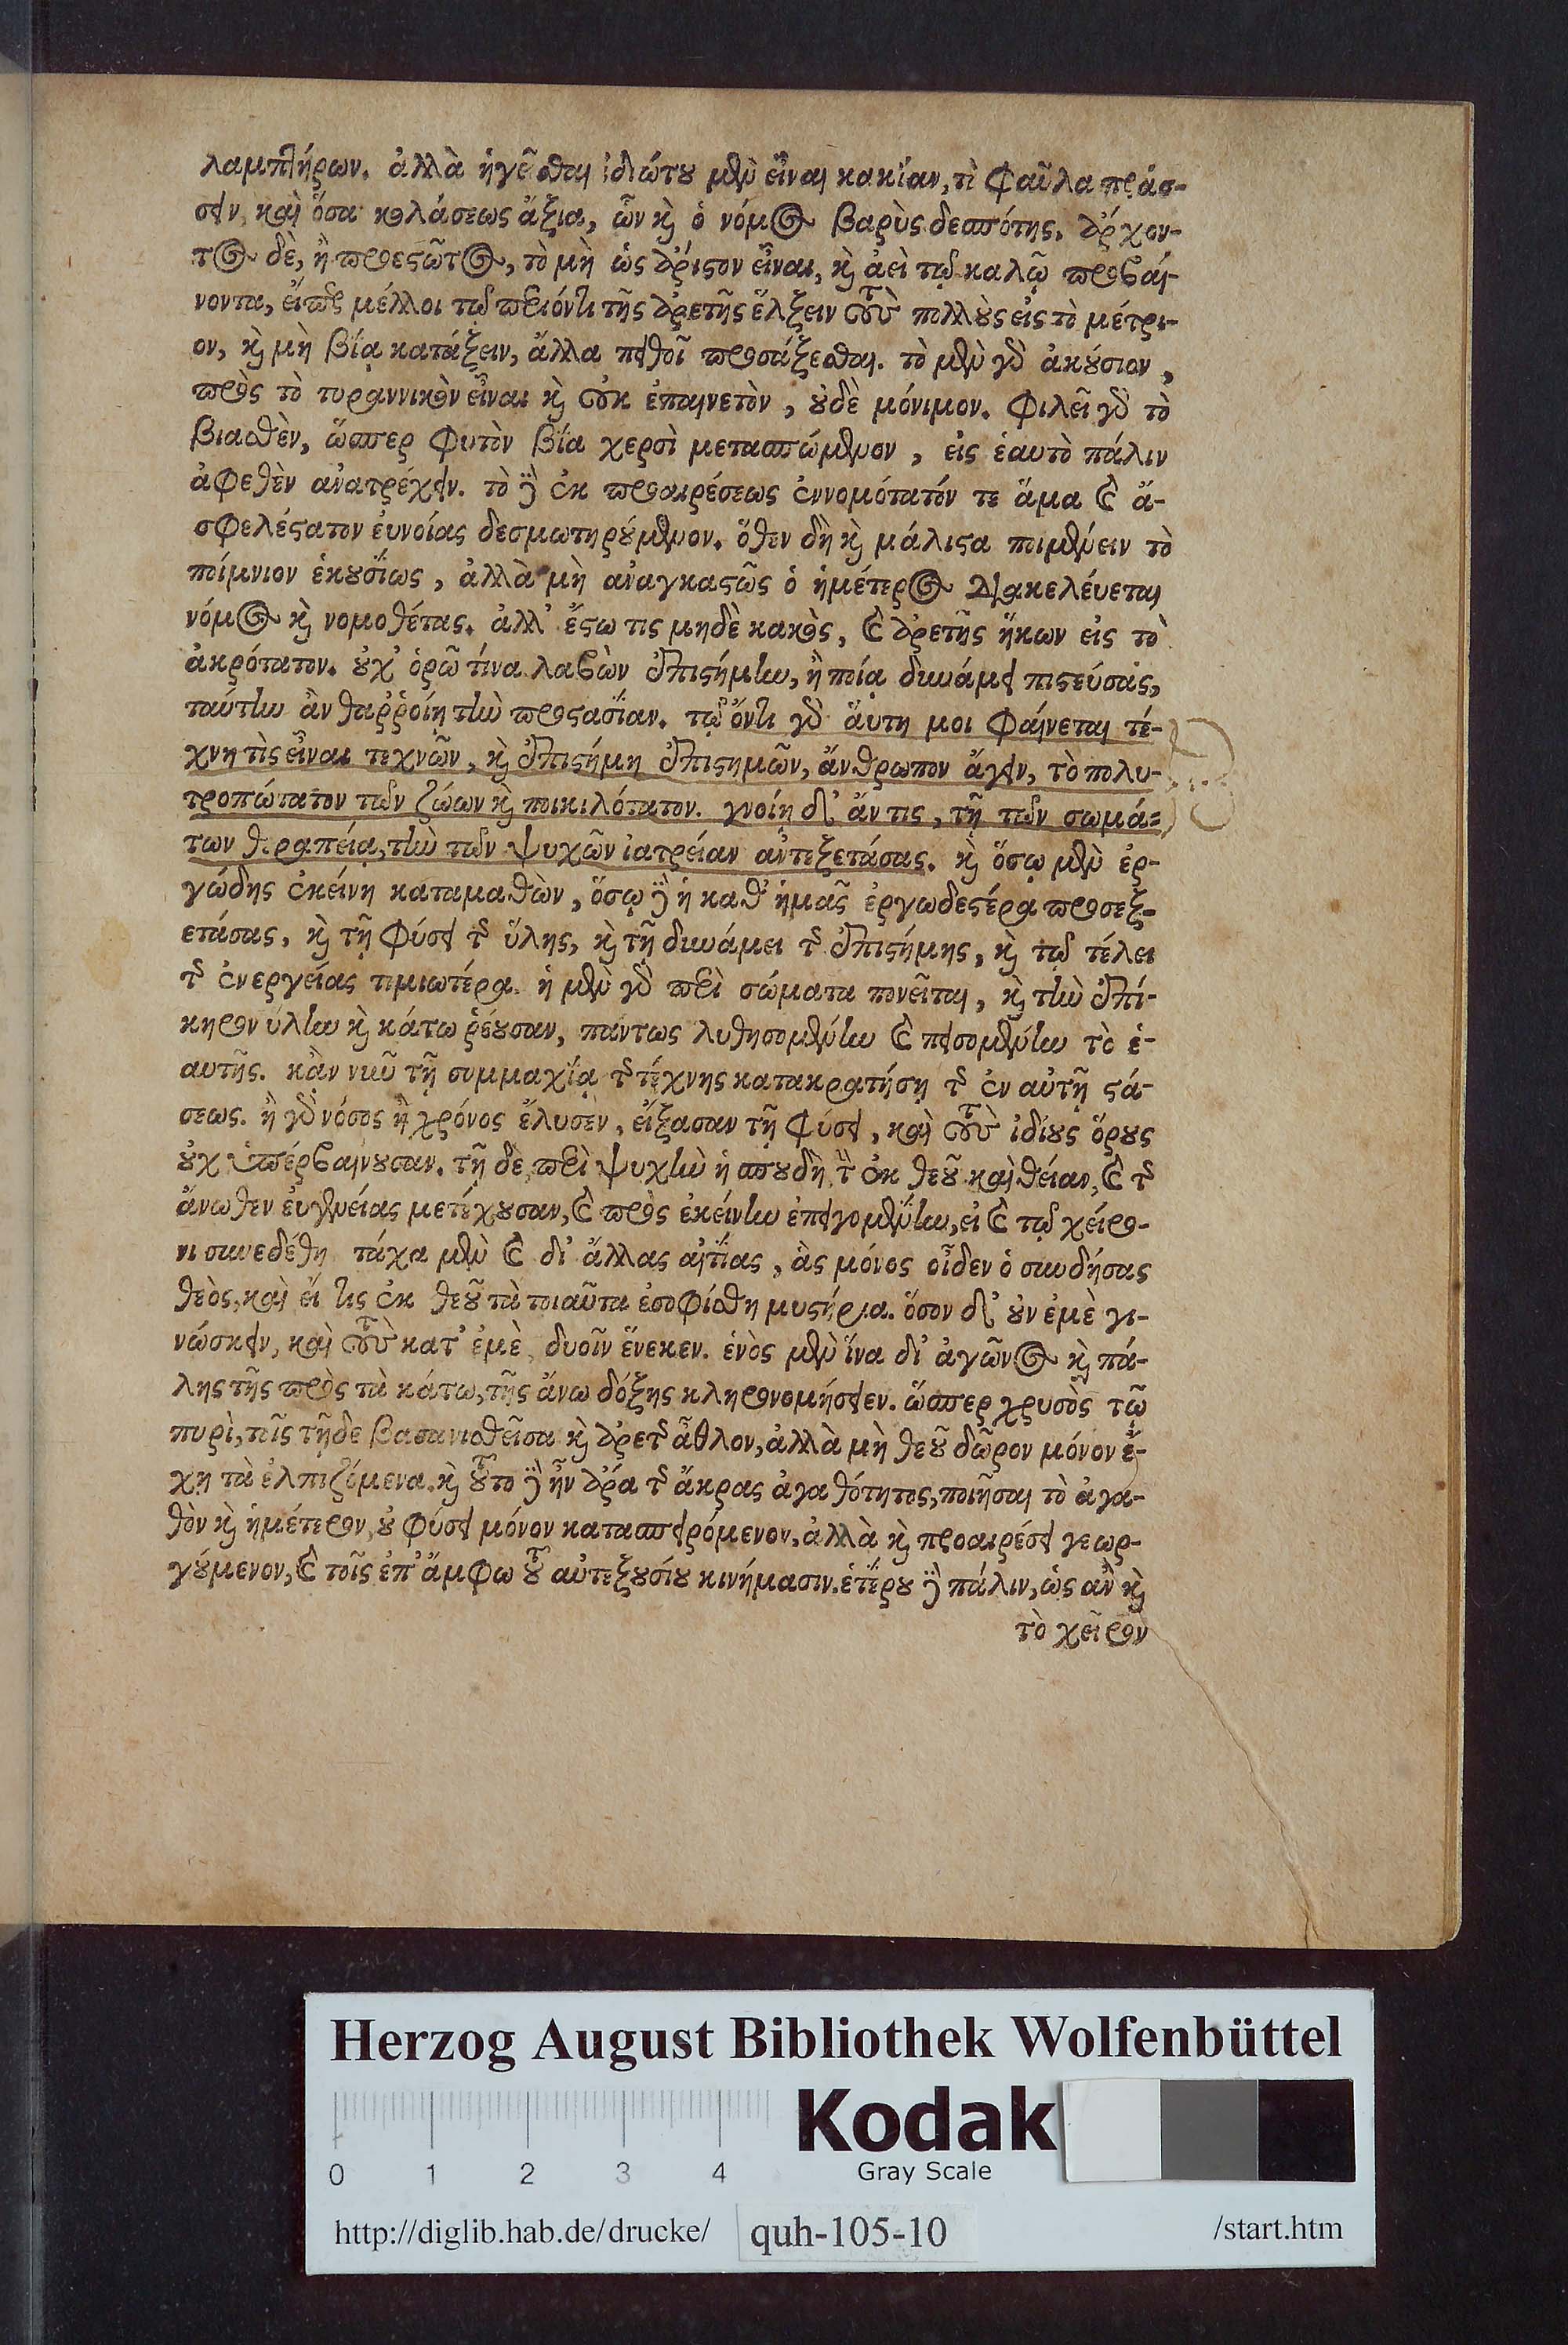 λαμπτήρων. ἀλλὰ ἡγεῖσθαι ἰδιώτου μὲν εἶναι κακίαν, τὶ φαῦλα πράσ-
σειν, καὶ ὅσα κολάσεως ἄξια, ὧν καὶ ὁ νόμος βαρὺς δεσπότης. ἄρχον-
τος δὲ, ἢ προεστῶτος, τὸ μὴ ὡς ἄριστον εἶναι, καὶ ἀεὶ τῷ καλῷ προβαί-
νοντα, εἴπερ μέλλοι τῷ περιόντι τῆς ἀρετῆς ἕλξειν τοὺς πολλοὺς εἰς τὸ μέτρι-
ον, καὶ μὴ βίᾳ κατάξειν, ἄλλα πειθοῖ προσάξεσθαι. τὸ μὲν γὰρ ἀκούσιον,
πρὸς τὸ τυραννικὸν εἶναι καὶ οὐκ ἐπαινετὸν, οὐδὲ μόνιμον. φιλεῖ γὰρ τὸ
βιασθὲν, ὥσπερ φυτὸν βίᾳ χερσὶ μετασπώμενον, εἰς ἑαυτὸ πάλιν
ἀφεθὲν ἀνατρέχειν. τὸ δὲ ἐκ προαιρέσεως ἐννομότατόν τε ἅμα καὶ ἀ-
σφελέστατον εὐνοίας δεσμωτηρούμενον. ὅθεν δὴ καὶ μάλιστα ποιμένειν τὸ
ποίμνιον ἑκουσίως, ἀλλὰ μὴ ἀναγκαστῶς ὁ ἡμέτερος διακελέυεται
νόμος καὶ νομοθέτας. ἀλλ' ἔστω τις μηδὲ κακὸς, καὶ ἀρετῆς ἥκων εἰς τὸ
ἀκρότατον. οὐχ' ὁρῶ τίνα λαβὼν ἐπιστήμην, ἢ ποίᾳ δυνάμει πιστεύσας,
ταύτην ἂν θαῤῥοίη τὴν προστασίαν. τῷ ὄντι γὰρ ἅυτη μοι φαίνεται τέ-
χνη τὶς εἶναι τεχνῶν, καὶ ἐπιστήμη ἐπιστημῶν, ἄνθρωπον ἄγειν, τὸ πολυ-
τροπώτατον τῶν ζώων καὶ ποικιλότατον. γνοίη δ' ἄν τις, τῇ τῶν σωμά-
των θεραπείᾳ, τὴν τῶν ψυχῶν ἰατρείαν ἀντεξετάσας. καὶ ὅσῳ μὲν ἐρ-
γώδης ἐκείνη καταμαθὼν, ὅσῳ δὲ ἡ καθ' ἡμᾶς ἐργωδεστέρα προσεξ-
ετάσας, καὶ τῇ φύσει τῆς ὕλης, καὶ τῇ δυνάμει τῆς ἐπιστήμης, καὶ τῷ τέλει
τῆς ἐνεργείας τιμιωτέρα. ἡ μὲν γὰρ περὶ σώματα πονεῖται, καὶ τὴν ἐπί-
κηρον ὕλην καὶ κάτω ῥέουσαν, πάντως λυθησομένην καὶ πεισομένην τὸ ἑ-
αυτῆς. κἂν νῦν τῇ συμμαχίᾳ τῆς τέχνης κατακρατήσῃ τῆς ἐν αὐτῇ στά-
σεως. ἢ γὰρ νόσος ἢ χρόνος ἔλυσεν, εἴξασαν τῇ φύσει, καὶ τοὺς ἰδίους ὅρους
οὐχ ὑπέρβαινουσαν. τῇ δὲ, περὶ ψυχὴν ἡ σπουδὴ, τὴν ἐκ θεοῦ καὶ θείαν, καὶ τῆς
ἄνωθεν εὐγενείας μετέχουσαν, καὶ πρὸς ἐκείνην ἐπειγομένην, εἰ καὶ τῷ χείρο-
νι συνεδέθη τάχα μὲν καὶ δι' ἄλλας αἰτίας, ἃς μόνος οἶδεν ὁ συνδήσας
θεὸς, καὶ εἴ τις ἐκ θεοῦ τὰ τοιαῦτα ἐσοφίσθη μυστήρια. ὅσον δ' οὖν ἐμὲ γι-
νώσκειν, καὶ τοὺς κατ' ἐμὲ, δυοῖν ἕνεκεν. ἑνὸς μὲν ἵνα δι' ἀγῶνος καὶ πά-
λης τῆς πρὸς τὰ κάτω, τῆς ἄνω δόξης κληρονομήσειεν. ὥσπερ χρυσὸς τῷ
πυρὶ, τοῖς τῇδε βασανισθεῖσα καὶ ἀρετῆς ἆθλον, ἀλλὰ μὴ θεοῦ δῶρον μόνον ἔ-
χῃ τὰ ἐλπιζόμενα. καὶ τοῦτο δὲ ἦν ἄρα τῆς ἄκρας ἀγαθότητος, ποιῆσαι τὸ ἀγα-
θὸν καὶ ἡμέτερον, οὐ φύσει μόνον κατασπειρόμενον, ἀλλὰ καὶ προαιρέσει γεωρ-
γούμενον, καὶ τοῖς ἐπ' ἄμφω τοῦ αὐτεξουσίου κινήμασιν. ἑτέρου δὲ πάλιν, ὡς ἂν καὶ
τὸ χεῖρον
Herzog August Bibliothek Wolfenbüttel
Kodak
0 1 2 3 4 Gray Scale
http://diglib.hab.de/drucke/ quh-105-10 /start.htm